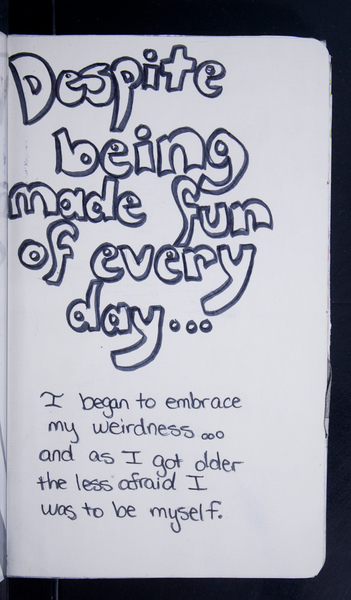 Despite
being
made fun
of every
day...
I began to embrace
my weirdness...
and as I got older
the less afraid I
was to be myself.